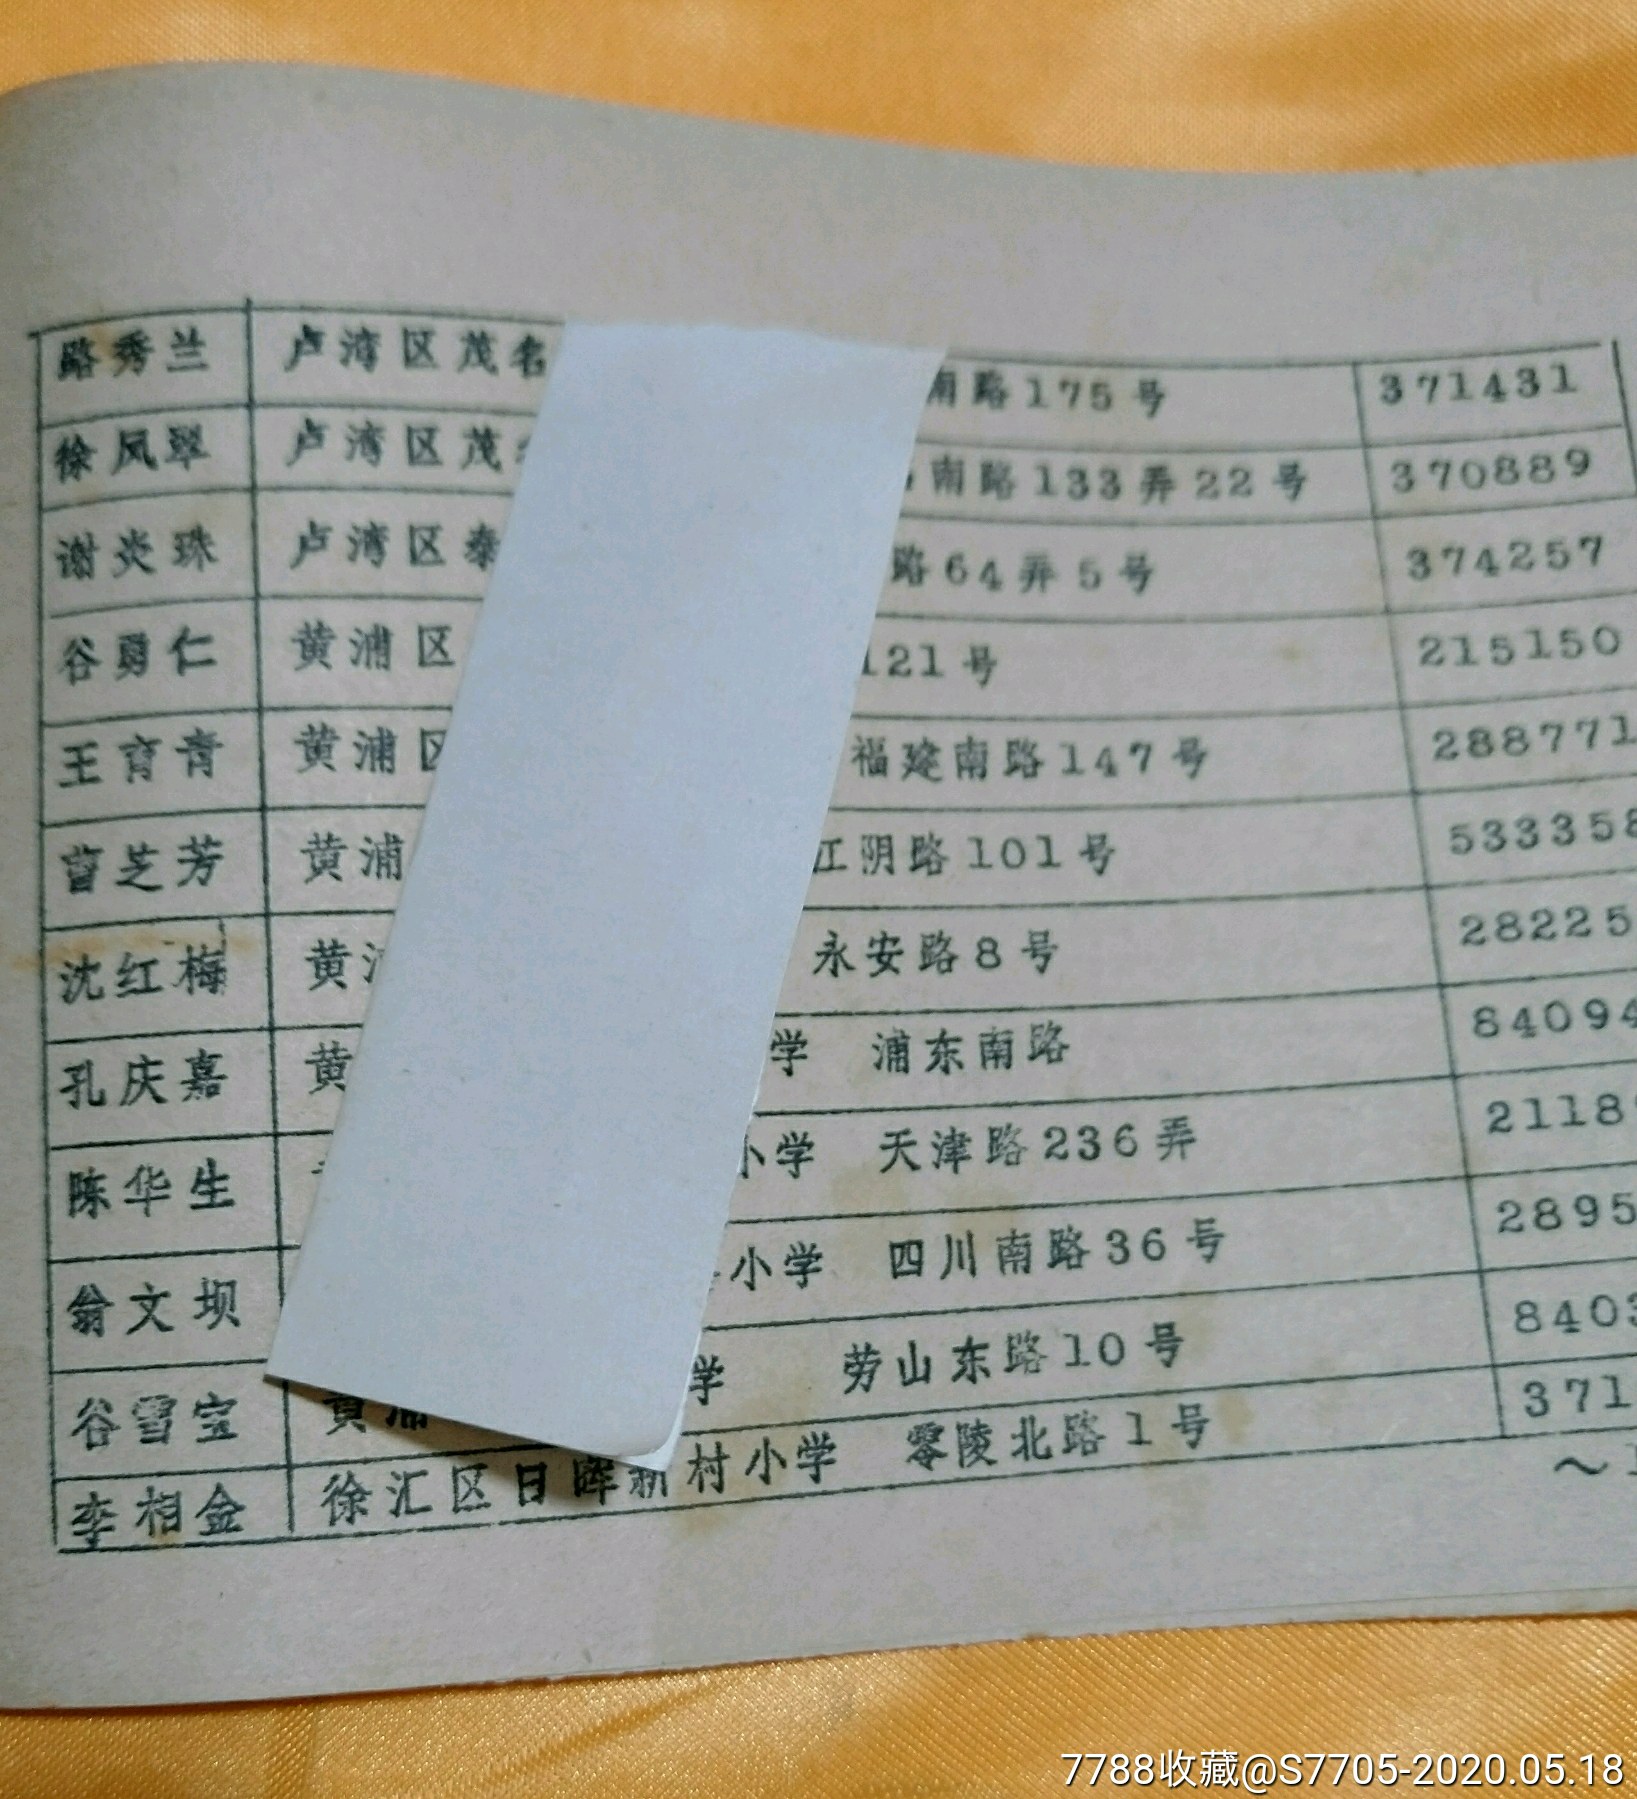 路秀兰 卢湾区茂名 南路175号 371431
徐凤翠 卢湾区茂 南路133弄22号 370889
谢炎珠 卢湾区泰 路64弄5号 374257
谷勇仁 黄浦区 121号 215150
王育青 黄浦区 福建南路147号 288771
曹芝芳 黄浦 江阴路101号 533358
沈红梅 黄 永安路8号 28225
孔庆嘉 黄 学 浦东南路 84094
陈华生 小学 天津路236弄 2118
翁文坝 小学 四川南路36号 2895
谷雪宝 黄浦 学 劳山东路10号 8403
李相金 徐汇区日晖新村小学 零陵北路1号 371
7788收藏@S7705-2020.05.18